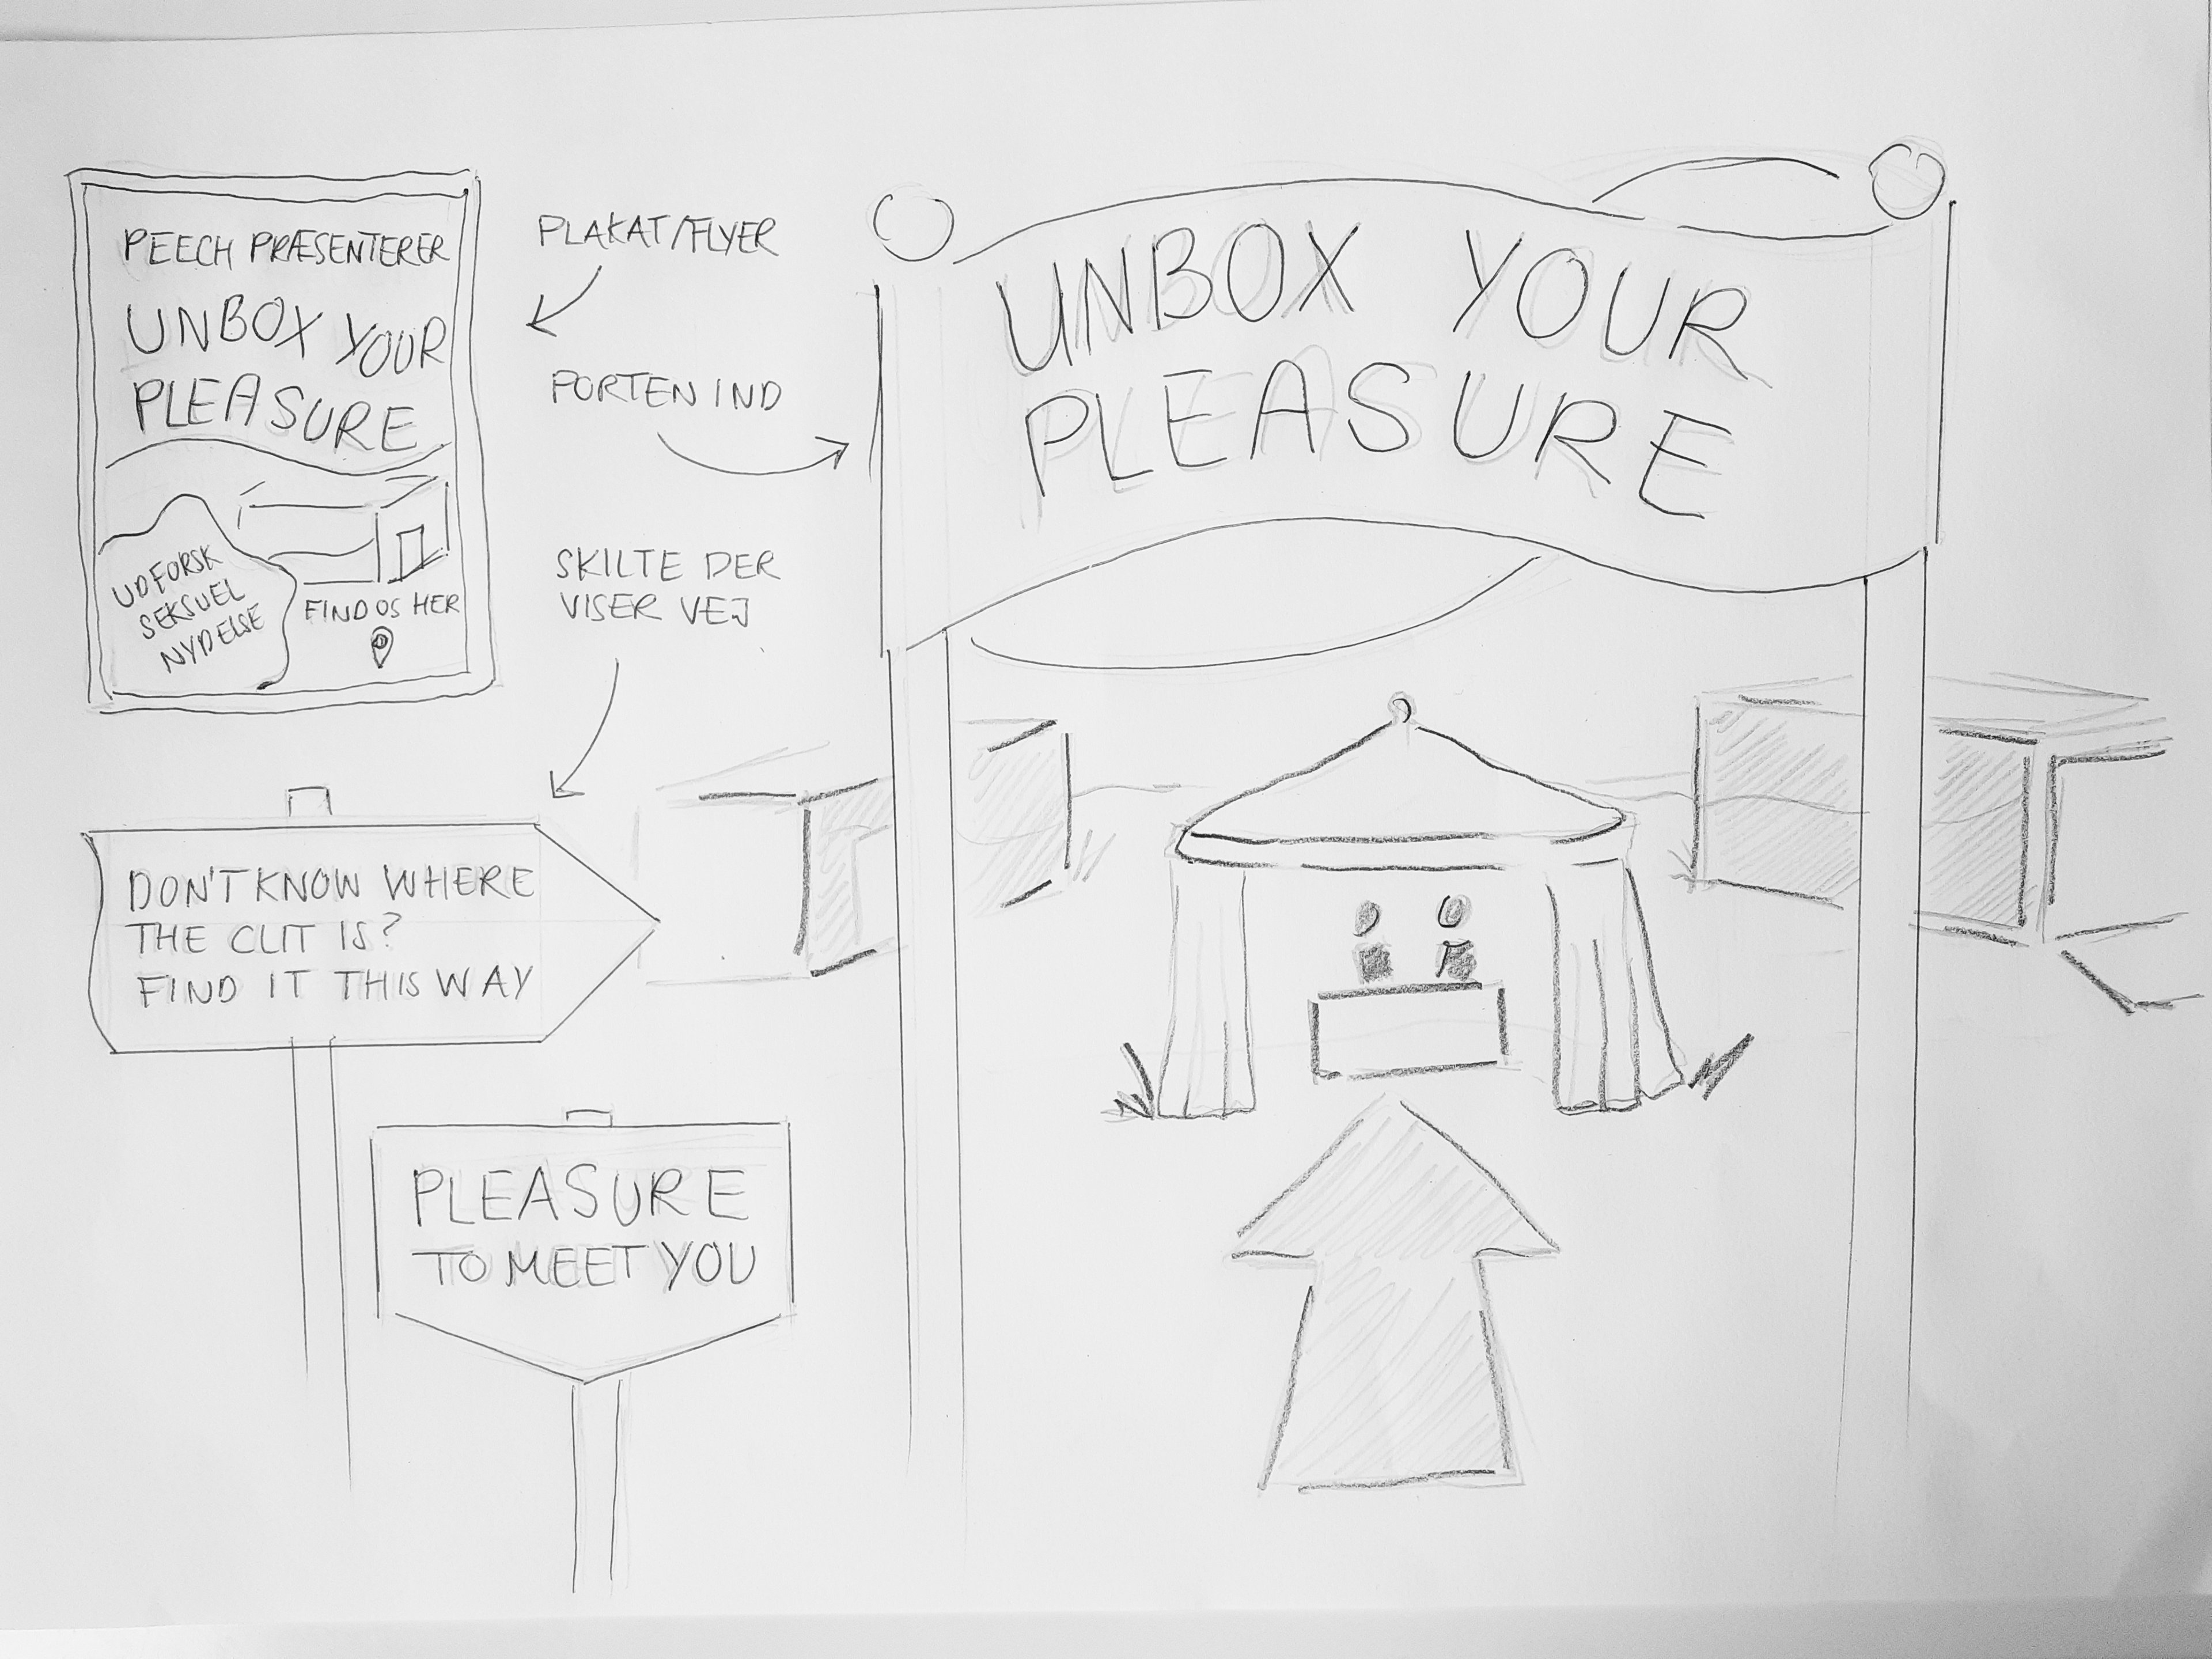 PEECH PRÆSENTERER
UNBOX YOUR
PLEASURE
UDFORSK
SEKSUEL
NYDELSE
FIND OS HER
PLAKAT/FLYER
PORTEN IND
SKILTE DER
VISER VEJ
UNBOX YOUR
PLEASURE
DON'T KNOW WHERE
THE CLIT IS?
FIND IT THIS WAY
PLEASURE
TO MEET YOU